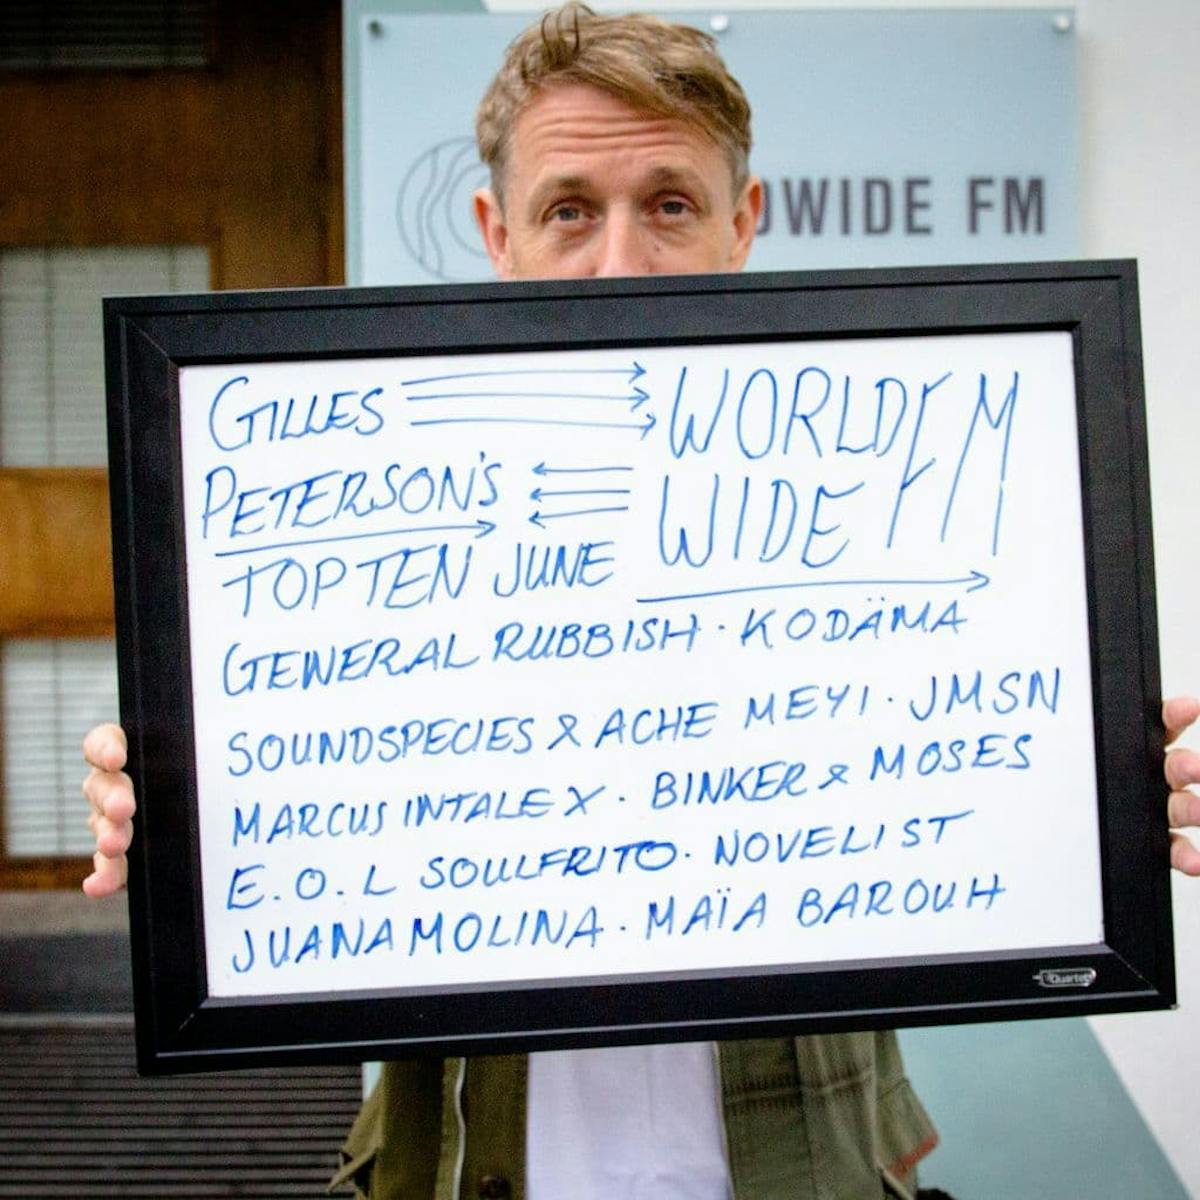 DWIDE FM
GILLES WORLD FM
PETERSON'S WIDE
TOP TEN JUNE
GENERAL RUBBISH · KODÄMA
SOUNDSPECIES & ACHE MEYI · JMSN
MARCUS INTALEX · BINKER & MOSES
E.O.L SOULFRITO · NOVELIST
JUANA MOLINA · MAÏA BAROUH
Quartet